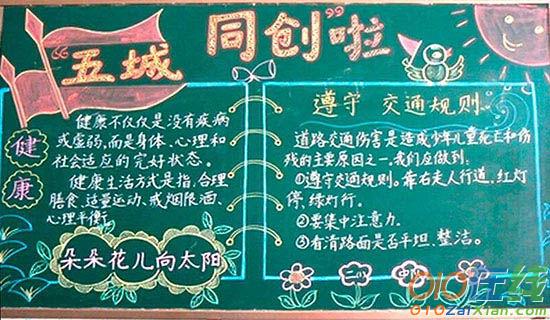 “五城同创”啦
健康
健康不仅仅是没有疾病
或虚弱,而是身体、心理和
社会适应的完好状态。
健康生活方式是指,合理
膳食、适量运动、戒烟限酒、
心理平衡。
朵朵花儿向太阳
遵守 交通规则。
道路交通伤害是造成少年儿童死亡和伤
残的主要原因之一。我们应做到:
①遵守交通规则。靠右走人行道,红灯
停,绿灯行。
②要集中注意力。
③看清路面是否平坦、整洁。
二（1） 中队
010在线
010zaixian.com